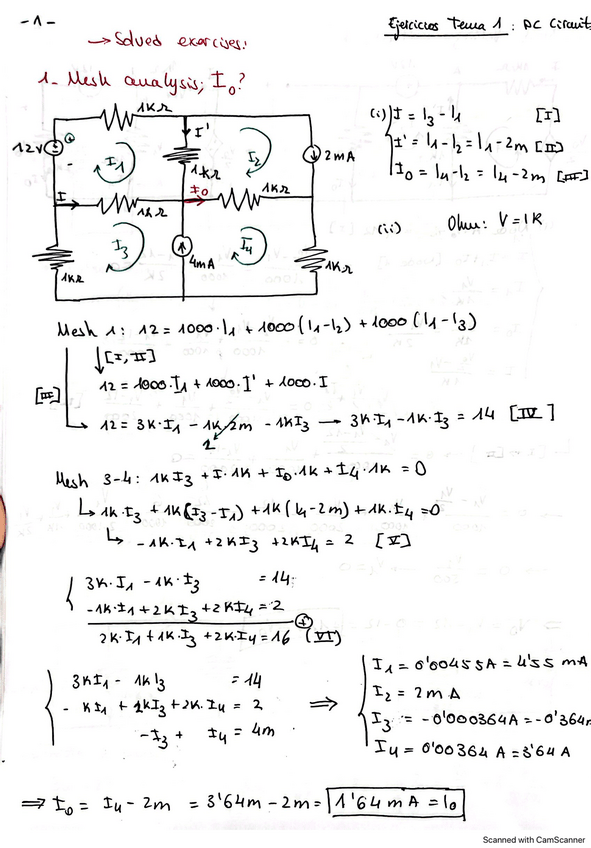 -1-
Ejercicios Tema 1: DC Circuits
→ Solved exercises:
1- Mesh analysis; I₀?
1KΩ
12V
+
-
I1
I'
1KΩ
I2
2mA
I
1KΩ
I₀
1KΩ
1KΩ
I3
4mA
I4
1KΩ
(i) I = I3 - I1 [I]
I' = I1 - I2 = I1 - 2m [II]
I₀ = I4 - I2 = I4 - 2m [III]
(ii) Ohm: V = IR
Mesh 1: 12 = 1000·I1 + 1000(I1-I2) + 1000(I1-I3)
↓ [I, II]
12 = 1000·I1 + 1000·I' + 1000·I
[III]
↳ 12 = 3K·I1 - 1K·2m - 1KI3 → 3K·I1 - 1K·I3 = 14 [IV]
2
Mesh 3-4: 1KI3 + I·1K + I₀·1K + I4·1K = 0
↳ 1K·I3 + 1K(I3-I1) + 1K(I4-2m) + 1K·I4 = 0
↳ -1K·I1 + 2KI3 + 2KI4 = 2 [V]
3K·I1 - 1K·I3 = 14
-1K·I1 + 2KI3 + 2KI4 = 2
+
2K·I1 + 1K·I3 + 2K·I4 = 16 (VI)
3KI1 - 1KI3 = 14
- KI1 + 2KI3 + 2K·I4 = 2
-I3 + I4 = 4m
⇒
I1 = 0'00455A = 4'55 mA
I2 = 2mA
I3 = -0'000364A = -0'364m
I4 = 0'00364 A = 3'64 A
⇒ I₀ = I4 - 2m = 3'64m - 2m = 1'64 mA = I₀
Scanned with CamScanner